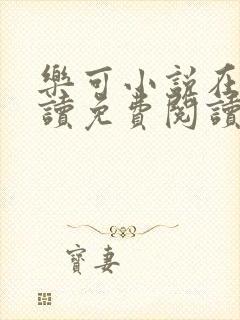 樂可小說在
讀免費閱讀
寶妻